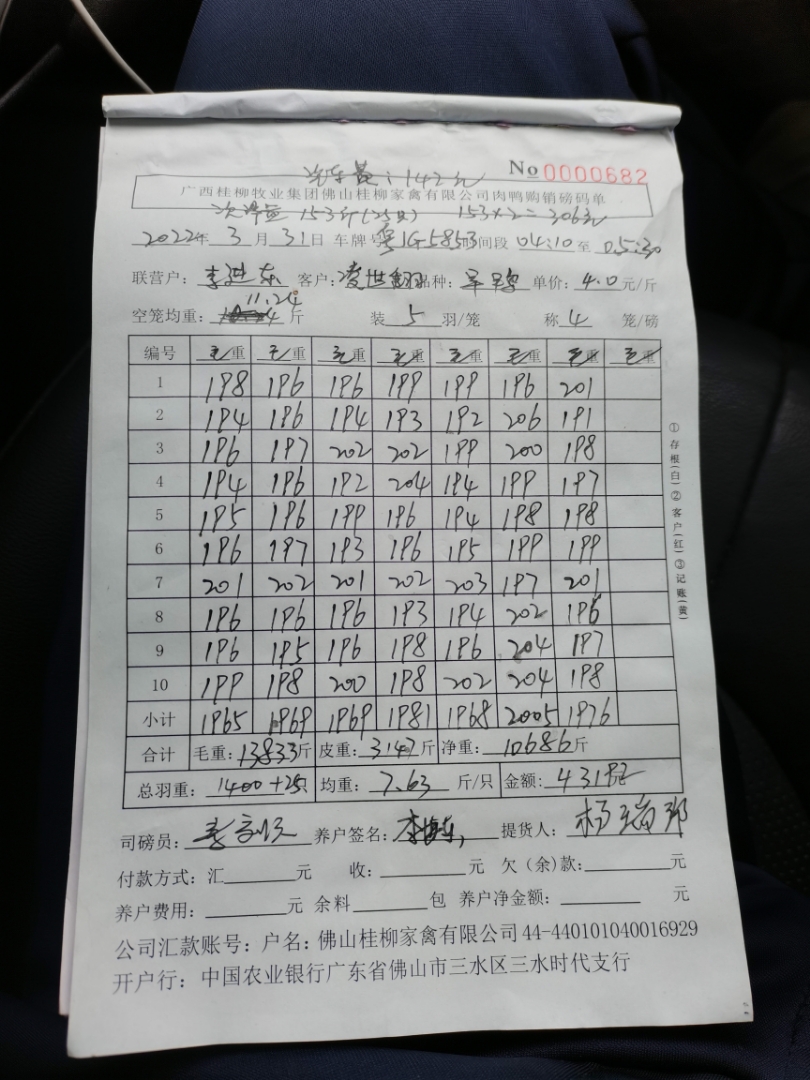 汽车费:142元 No 0000682
广西桂柳牧业集团佛山桂柳家禽有限公司肉鸭购销磅码单
次净重 153斤(25只) 153×2=306元
2022年 3月 31日 车牌号 粤JG5853 时间段 04:10 至 05:30
联营户: 李进东 客户: 凌世 品种: 单价: 4.0 元/斤
11.24
空笼均重: 斤 装 5 羽/笼 称 4 笼/磅
编号 毛重 毛重 毛重 毛重 毛重 毛重 毛重 毛重
1 198 196 196 199 199 196 201
2 194 196 194 193 192 206 191
3 196 197 202 202 199 200 198
4 194 196 192 204 194 199 197
5 195 196 199 196 194 198 198
6 196 197 193 196 195 199 199
7 201 202 201 202 203 197 201
8 196 196 196 193 194 202 196
9 196 195 196 198 196 204 197
10 199 198 200 198 202 204 198
小计 1965 1969 1969 1981 1968 2005 1976
合计 毛重: 13833斤 皮重: 3147斤 净重: 10686斤
总羽重: 1400+25只 均重: 7.63 斤/只 金额:
司磅员: 养户签名: 提货人:
付款方式: 汇 元 收: 元 欠(余)款: 元
养户费用: 元 余料 包 养户净金额: 元
公司汇款账号: 户名: 佛山桂柳家禽有限公司 44-440101040016929
开户行: 中国农业银行广东省佛山市三水区三水时代支行
①存根(白)②客户(红)③记账(黄)